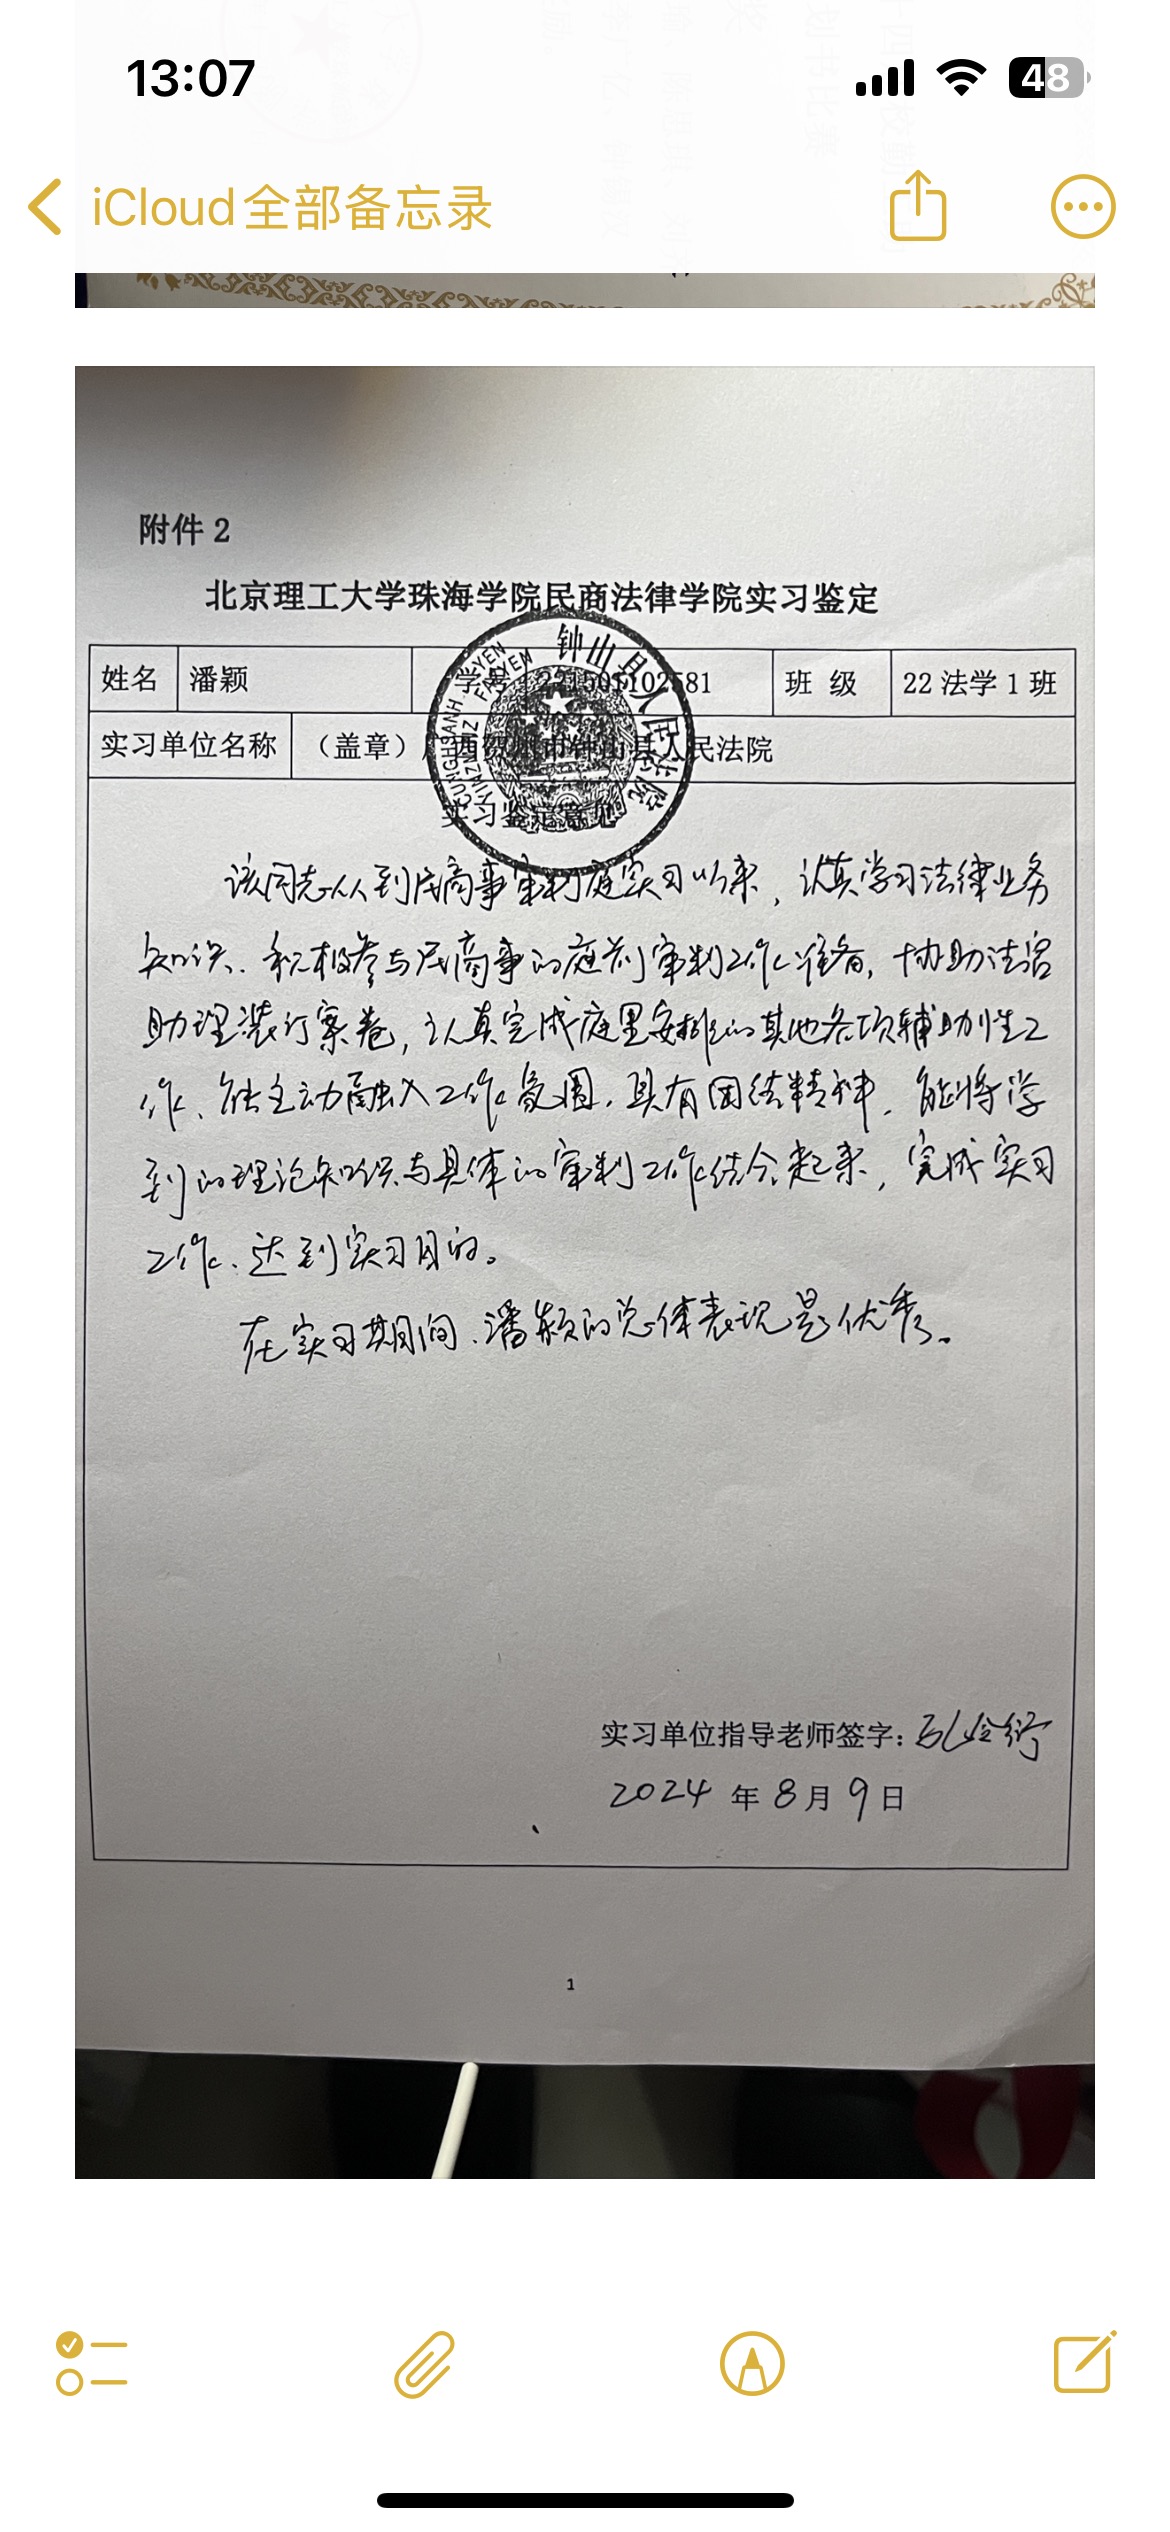 13:07
48
iCloud全部备忘录
附件 2
北京理工大学珠海学院民商法律学院实习鉴定
钟山县人民法院
姓名 潘颖 学号 班 级 22 法学 1 班
实习单位名称 （盖章）广西贺州市钟山县人民法院
实习鉴定意见
该同志从到民商事审判庭实习以来，认真学习法律业务
知识、积极参与民商事的庭前审判工作准备，协助法官
助理装订案卷，认真完成庭里安排的其他各项辅助性工
作、能主动融入工作氛围，具有团结精神，能将学
到的理论知识与具体的审判工作结合起来，完成实习
工作、达到实习目的。
在实习期间、潘颖的总体表现是优秀。
实习单位指导老师签字：
2024 年 8 月 9 日
1